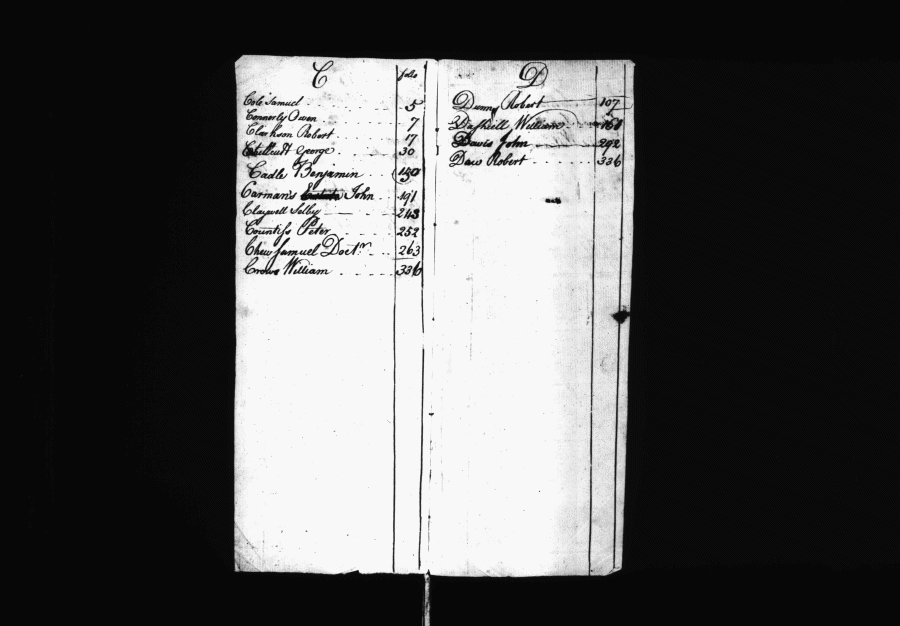 C folio
Cole Samuel 5
Connerly Owen 7
Clarkson Robert 17
George 30
Cadle Benjamin 150
Carman's John 191
Claywell Selby 243
Countiss Peter 252
Chew Samuel Doctr. 263
Crowe William 336
D
Dunn Robert 107
Dashiell William 168
Davis John 292
Daw Robert 336